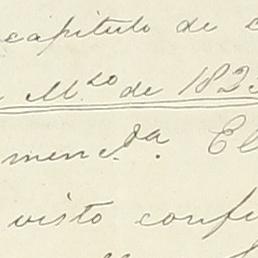 capitulo de c
M.zo de 182
menda. El
visto conf